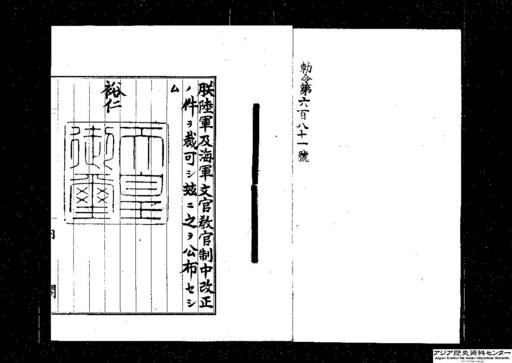 勅令第六百八十一號
朕陸軍及海軍文官教官制中改正
ノ件ヲ裁可シ玆ニ之ヲ公布セシ
ム
裕仁
天皇御璽
内閣
アジア歴史資料センター
Japan Center for Asian Historical Records